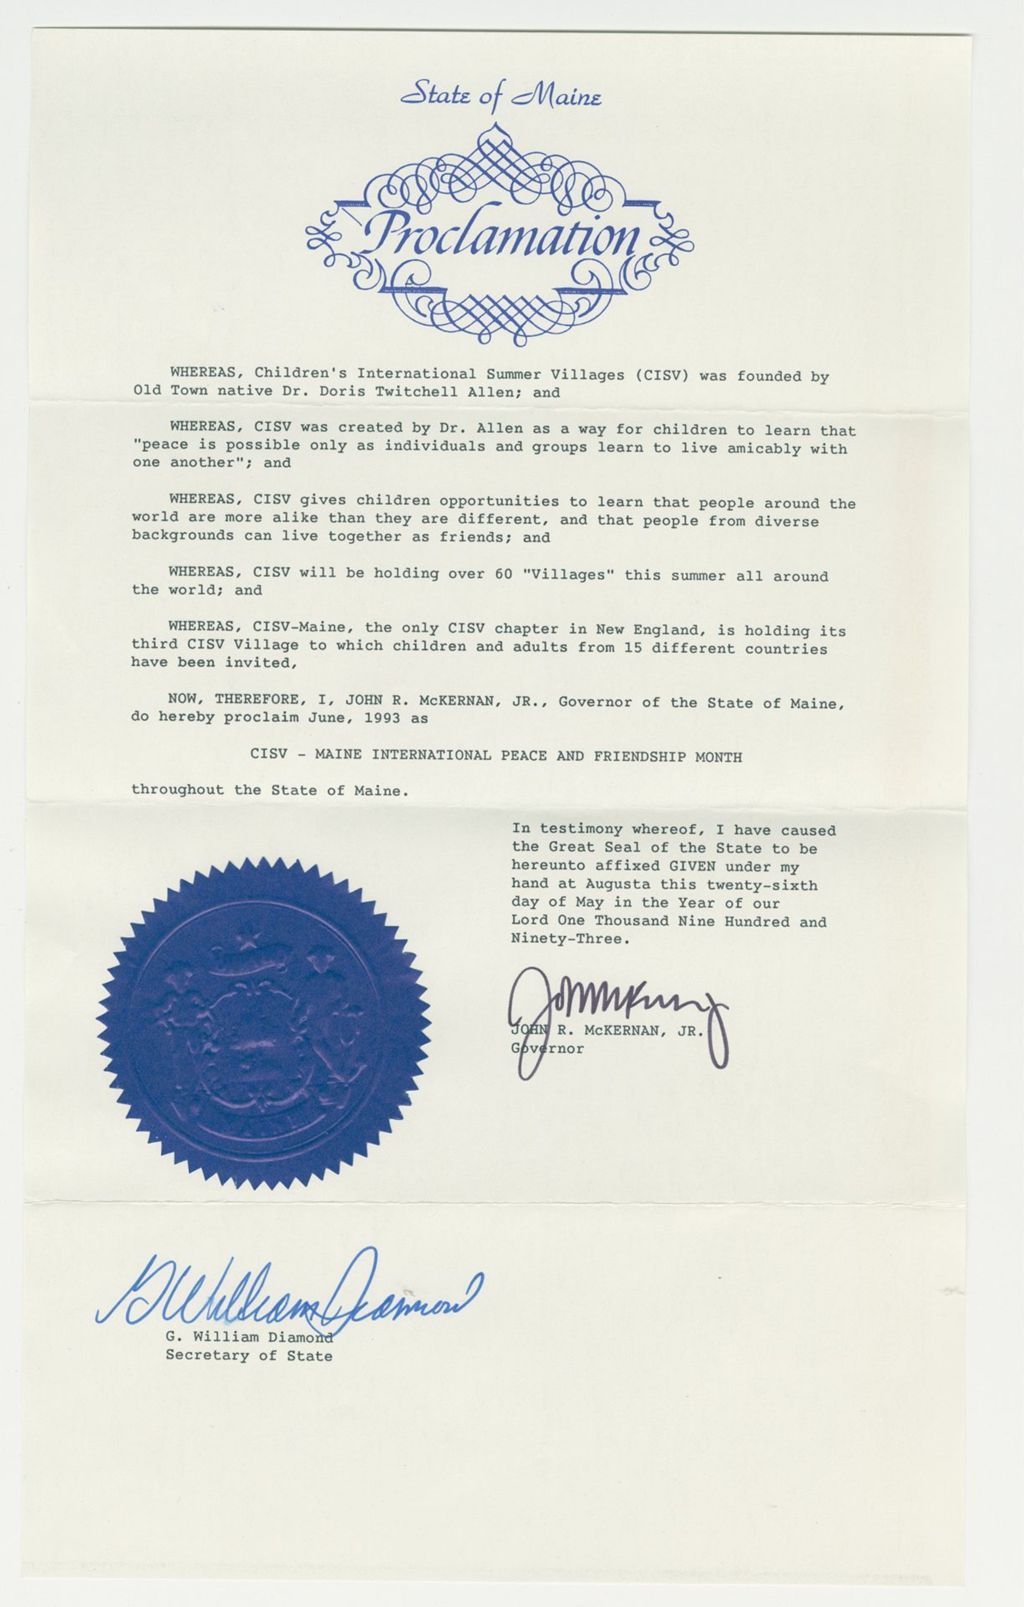 State of Maine
Proclamation
WHEREAS, Children's International Summer Villages (CISV) was founded by
Old Town native Dr. Doris Twitchell Allen; and
WHEREAS, CISV was created by Dr. Allen as a way for children to learn that
"peace is possible only as individuals and groups learn to live amicably with
one another"; and
WHEREAS, CISV gives children opportunities to learn that people around the
world are more alike than they are different, and that people from diverse
backgrounds can live together as friends; and
WHEREAS, CISV will be holding over 60 "Villages" this summer all around
the world; and
WHEREAS, CISV-Maine, the only CISV chapter in New England, is holding its
third CISV Village to which children and adults from 15 different countries
have been invited,
NOW, THEREFORE, I, JOHN R. McKERNAN, JR., Governor of the State of Maine,
do hereby proclaim June, 1993 as
CISV - MAINE INTERNATIONAL PEACE AND FRIENDSHIP MONTH
throughout the State of Maine.
In testimony whereof, I have caused
the Great Seal of the State to be
hereunto affixed GIVEN under my
hand at Augusta this twenty-sixth
day of May in the Year of our
Lord One Thousand Nine Hundred and
Ninety-Three.
JOHN R. McKERNAN, JR.
Governor
G William Diamond
G. William Diamond
Secretary of State